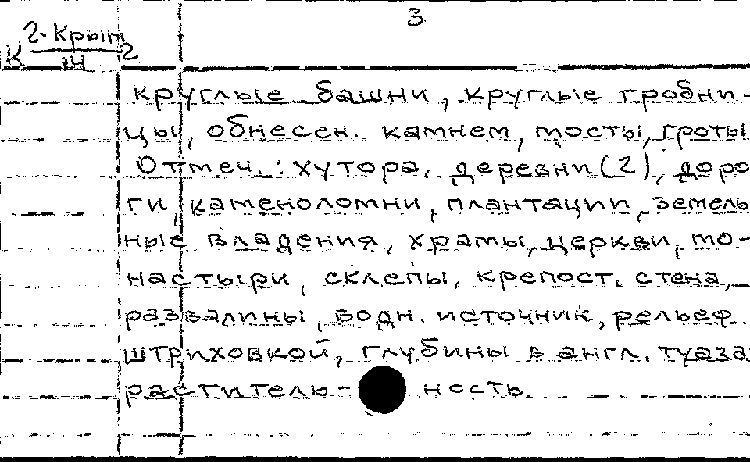 3
К 2-Крым 2
14
круглые башни, круглые гробни-
цы, обнесен. камнем, мосты, гроты
Отмеч.: хутора, деревни (2), доро
ги, каменоломни, плантации, земель
ные владения, храмы, церкви, мо-
настыри, склепы, крепост. стена,
развалины, водн. источник, рельеф
штриховкой, глубины в англ. туаза
раститель- ность.